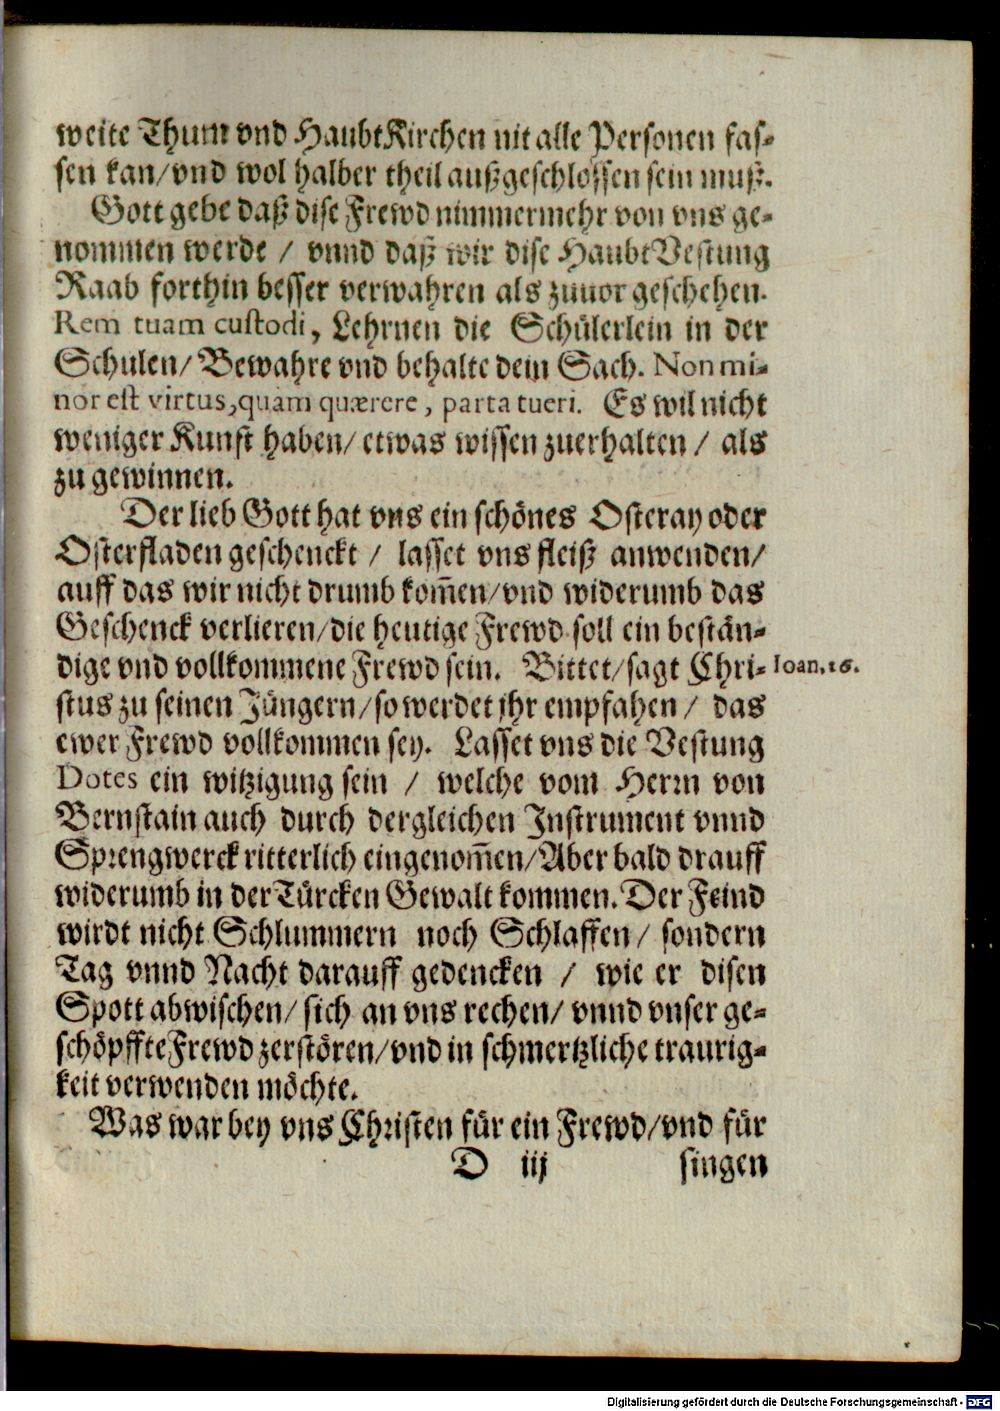 weite Thum vnd HaubtKirchen nit alle Personen fas-
sen kan/vnd wol halber theil außgeschlossen sein muß.
Gott gebe daß dise Frewd nimmermehr von vns ge-
nommen werde / vnnd daß wir dise HaubtVestung
Raab forthin besser verwahren als zuuor geschehen.
Rem tuam custodi, Lehrnen die Schülerlein in der
Schulen/ Bewahre vnd behalte dein Sach. Non mi-
nor est virtus, quàm quærere, parta tueri. Es wil nicht
weniger Kunst haben/ etwas wissen zuerhalten / als
zu gewinnen.
Der lieb Gott hat vns ein schönes Osteray oder
Osterfladen geschenckt / lasset vns fleiß anwenden/
auff das wir nicht drumb kom̄en/vnd widerumb das
Geschenck verlieren/die heutige Frewd soll ein bestän-
dige vnd vollkommene Frewd sein. Bittet/sagt Chri-
Ioan. 16.
stus zu seinen Jüngern/so werdet jhr empfahen / das
ewer Frewd vollkommen sey. Lasset vns die Vestung
Dotes ein witzigung sein / welche vom Herrn von
Bernstain auch durch dergleichen Instrument vnnd
Sprengwerck ritterlich eingenom̄en/Aber bald drauff
widerumb in der Türcken Gewalt kommen. Der Feind
wirdt nicht Schlummern noch Schlaffen/ sondern
Tag vnnd Nacht darauff gedencken / wie er disen
Spott abwischen/ sich an vns rechen/ vnnd vnser ge-
schöpffte Frewd zerstören/vnd in schmertzliche traurig-
keit verwenden möchte.
Was war bey vns Christen für ein Frewd/vnd für
D iij singen
Digitalisierung gefördert durch die Deutsche Forschungsgemeinschaft - DFG